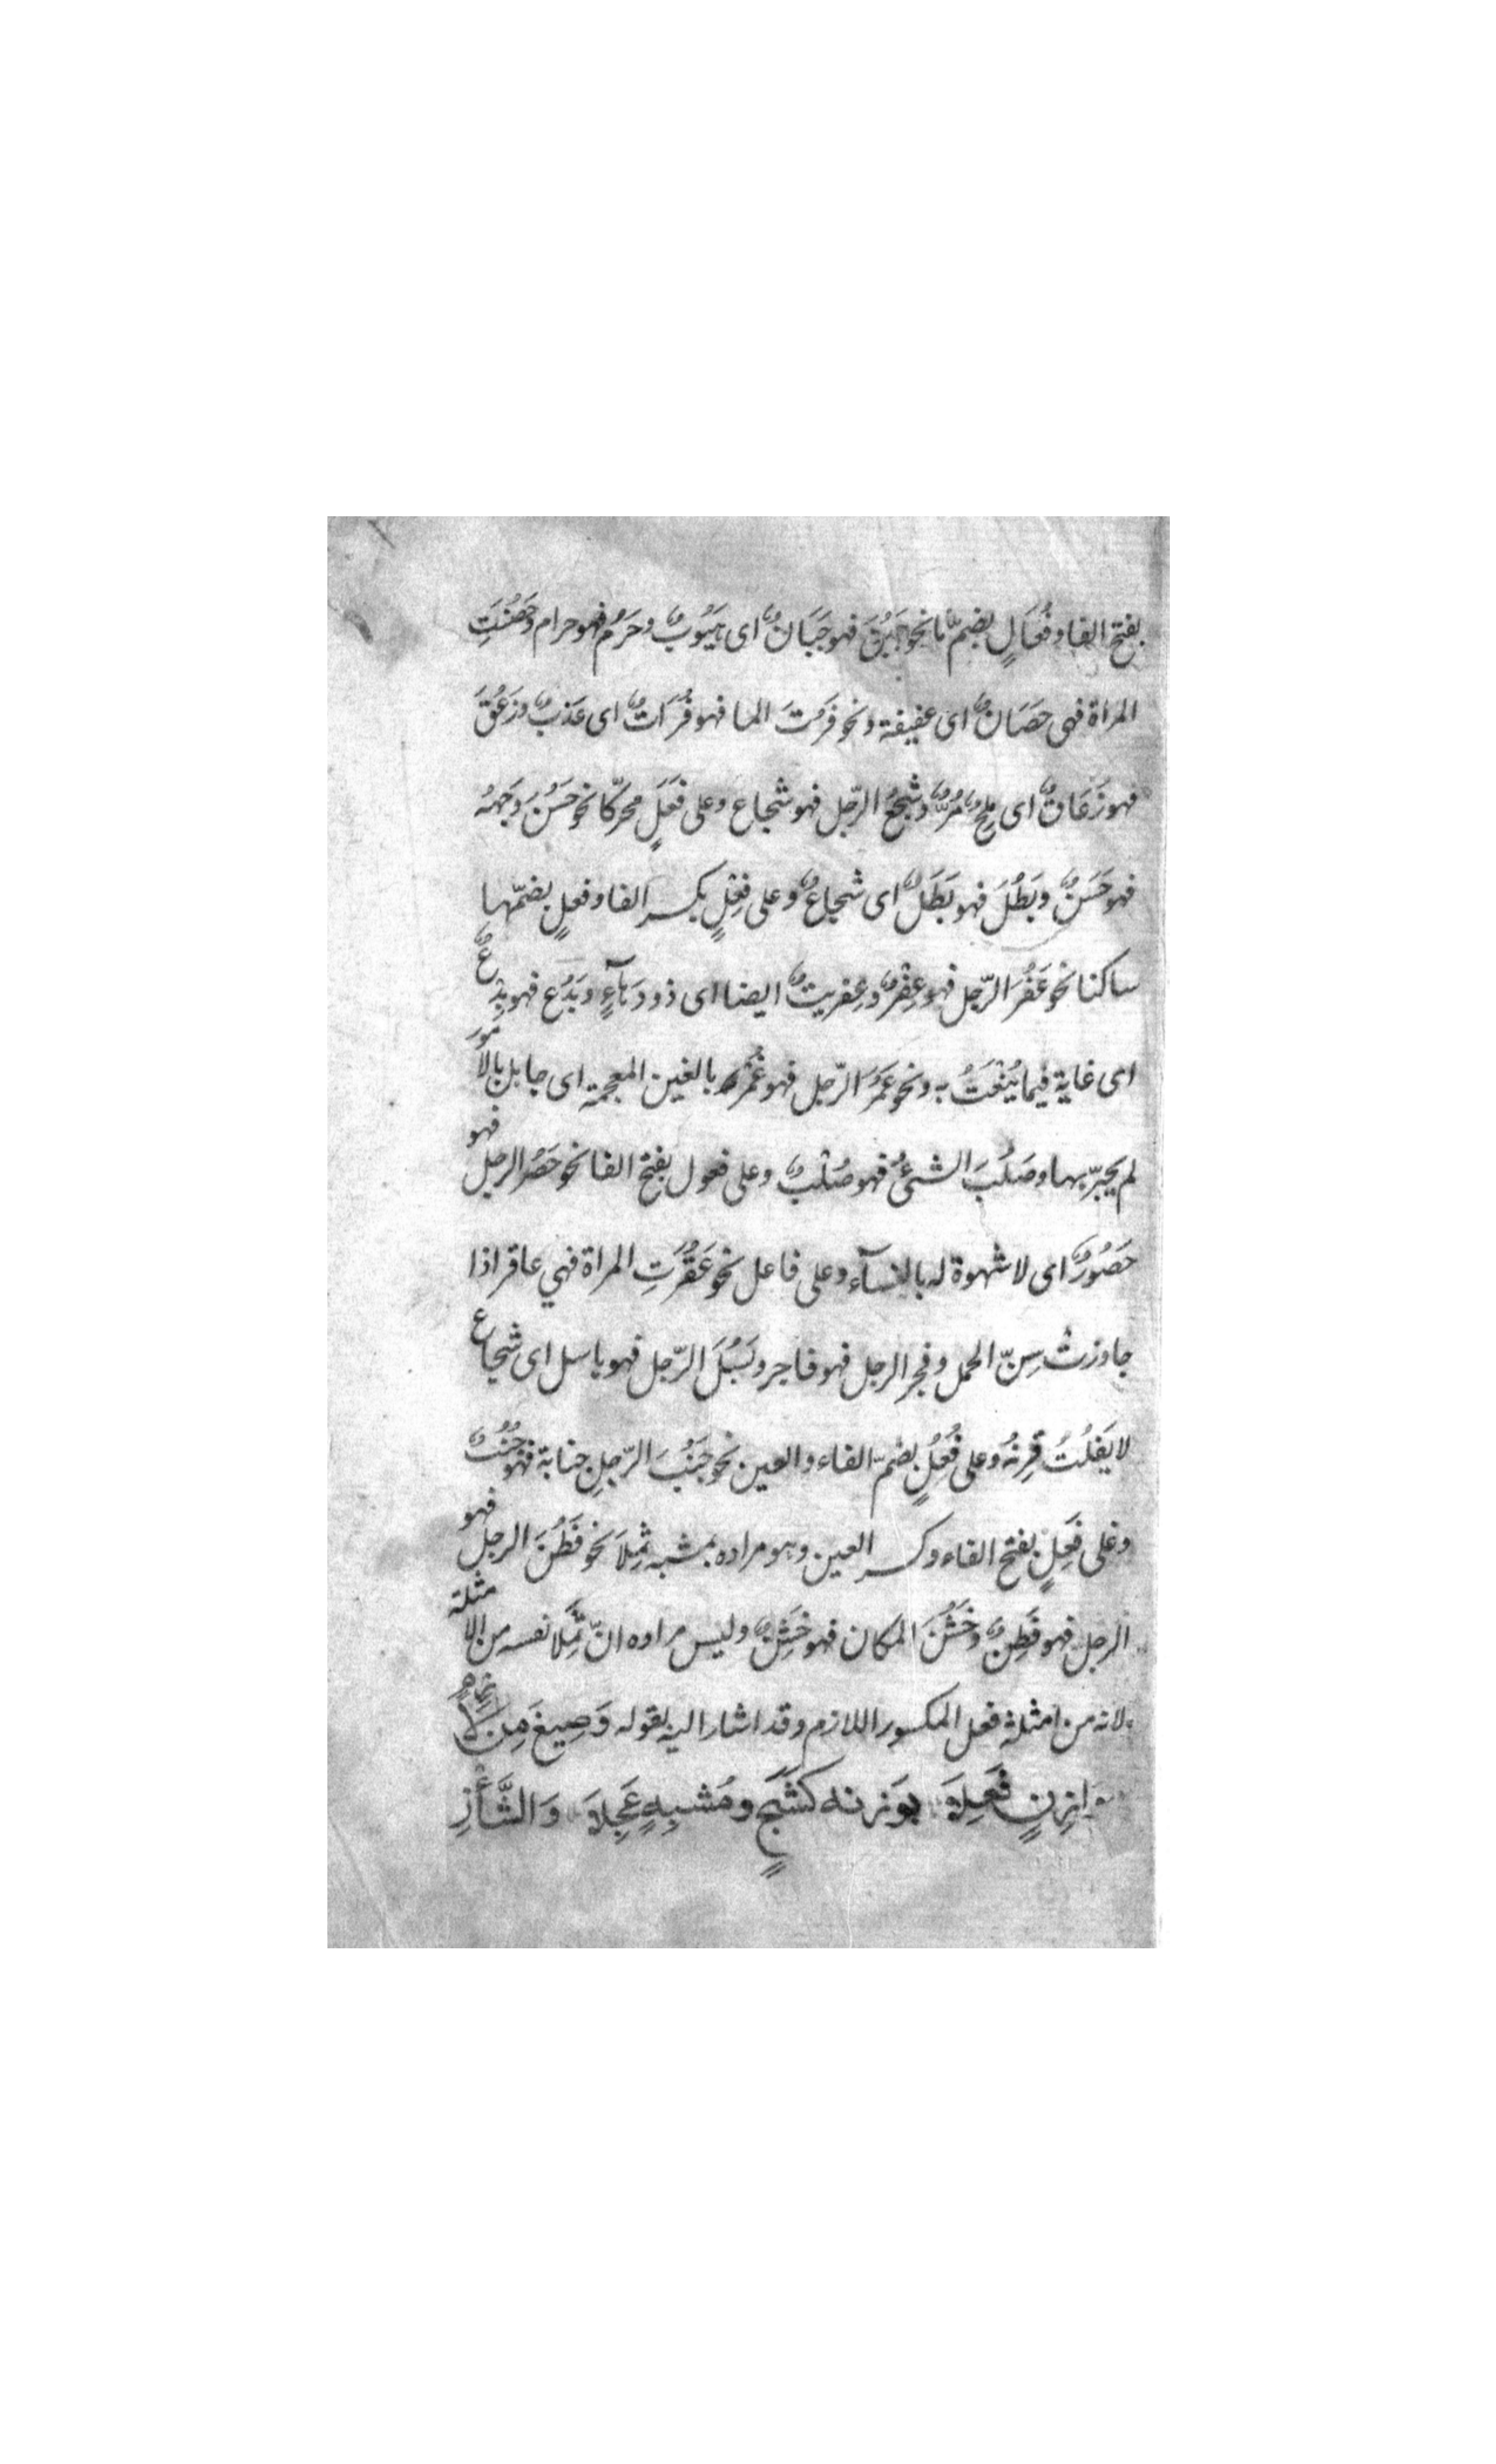 بفتح الفا وفُعَالٍ بضمّها نحو جَبُنَ فهو جَبَانٌ اى هَيُوبٌ وحَرُم فهو حرام وحَصُنَتِ
المراة فهى حَصَانٌ اى عفيفة ونحو فَرُتَ الما فهو فُرَاتٌ اى عَذبٌ وزَعُقَ
فهو زُعَاقٌ اى مِلحٌ مُرٌّ وشَجُعَ الرّجل فهو شجاع وعلى فَعَلٍ محرّكا نحو حَسُنَ وَجهُه
فهو حَسَنٌ وبَطُلَ فهو بَطَلٌ اى شجاعٌ وعلى فِعْلٍ بكسر الفا وفعلٍ بضمّها
ساكنا نحو عَفُرَ الرّجل فهو عِفْرٌ وعِفريتٌ ايضا اى ذو دَهَآءٍ وبَدُع فهو بِدْعٌ
اى غاية فيما يُنْعَتُ به ونحو غَمُرَ الرّجل فهو غُمْرٌ بالغين المعجمة اى جاهل بالامور
لم يجرّبها وصَلُبَ الشئُ فهو صُلْبٌ وعلى فعول بفتح الفا نحو حَصُر الرجل فهو
حَصُورٌ اى لا شهوة له بالنسآء وعلى فاعل نحو عَقُرَتِ المراة فهي عاقر اذا
جاوزتْ سِنّ الحمل وفجر الرجل فهو فاجر وبَسُلَ الرّجل فهو باسل اى شجاع
لا يَفلُتُ قِرنُهُ وعلى فُعُلٍ بضمّ الفاء والعين نحو جَنُبَ الرّجلِ جنابة فهو جُنُبٌ
وعلى فَعِلٍ بفتح الفاء وكسر العين وهو مراده بمشبه ثَمِلَا نحو فَطُنَ الرجل فهو
الرجل فهو فَطِنٌ وخَشُنَ المكان فهو خَشِنٌ وليس مراده انّ ثَمِلًا نفسه من الامثلة
لانه من امثلة فعل المكسور اللازم وقد اشار اليه بقوله وَصِيغَ مِن لَازِمٍ
مُوَازِنٍ فَعِلَا بِوَزنه كشَجٍ ومُشبِهٍ عَجِلَا وَالشَّأْزِ